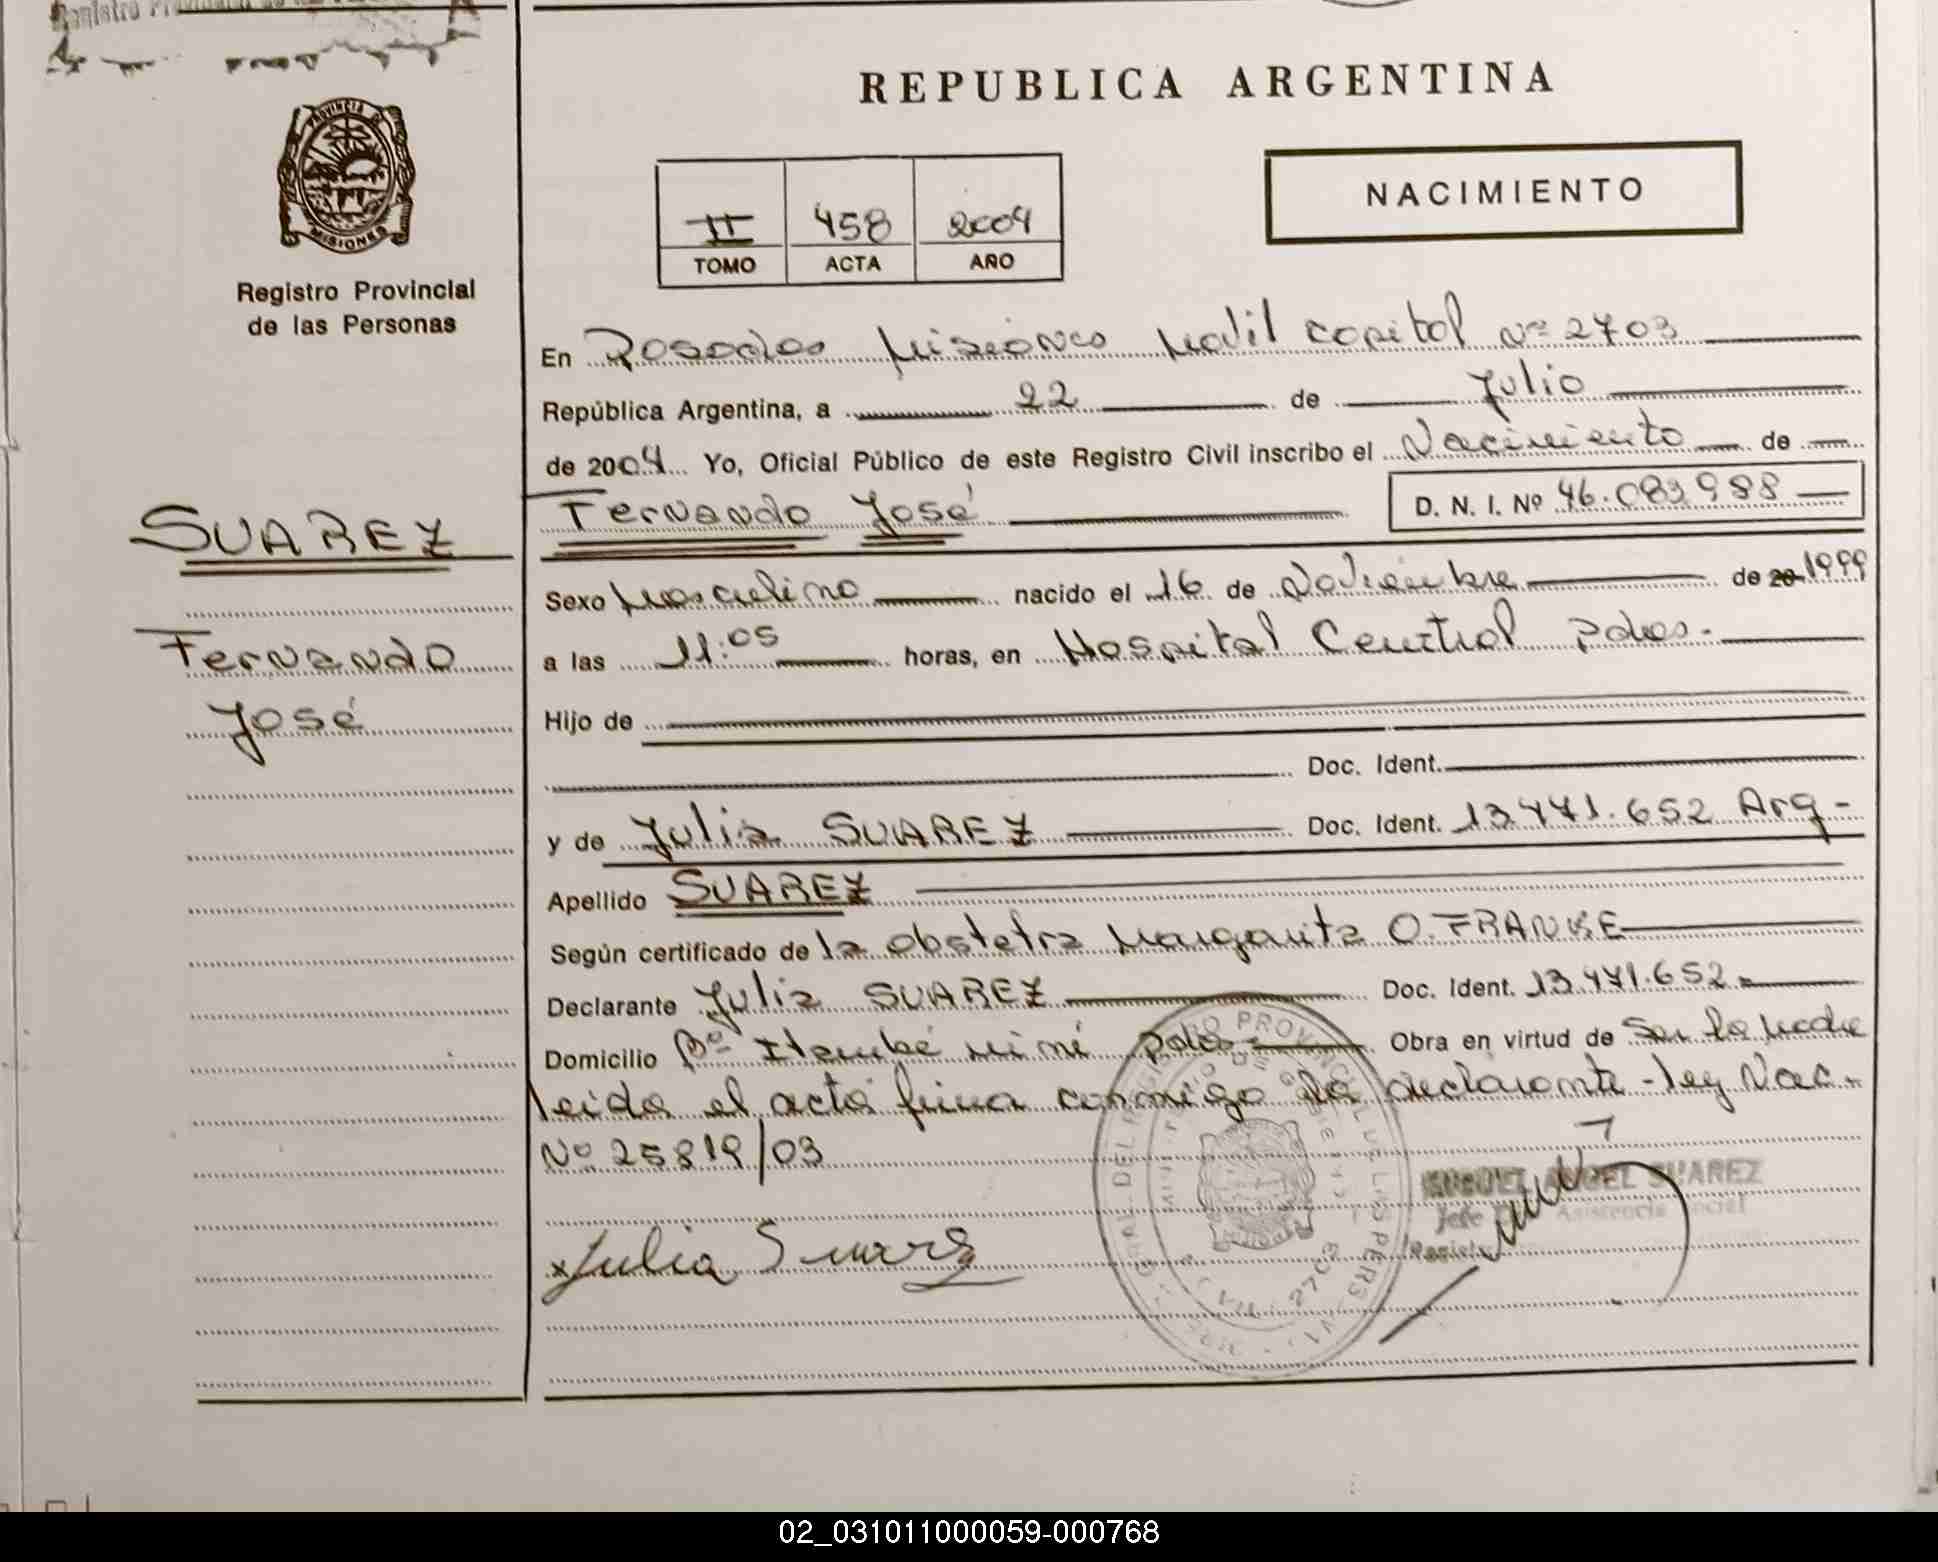 Registro
PROVINCIA DE
MISIONES
Registro Provincial
de las Personas
SUAREZ
Fernando
José
REPUBLICA ARGENTINA
II 458 2004
TOMO ACTA AÑO
NACIMIENTO
En Posadas Misiones Movil Capital Nº 2703
República Argentina, a 22 de Julio
de 2004 Yo, Oficial Público de este Registro Civil inscribo el Nacimiento de
Fernando José D. N. I. Nº 46.083.988
Sexo Masculino nacido el 16 de Noviembre de 20 1999
a las 11:05 horas, en Hospital Central Pdas.
Hijo de
Doc. Ident.
y de Julia SUAREZ Doc. Ident. 13.471.652 Arg-
Apellido SUAREZ
Según certificado de la obstetra Margarita O. FRANKE
Declarante Julia SUAREZ Doc. Ident. 13.471.652
Domicilio Bº Itaembé miní Pdas Obra en virtud de Ser la Madre
leida el acta firma conmigo la declarante - ley Nac.
Nº 25819/03
Julia Suarez
MIGUEL ANGEL SUAREZ
Jefe Asistencia Social
02_031011000059-000768